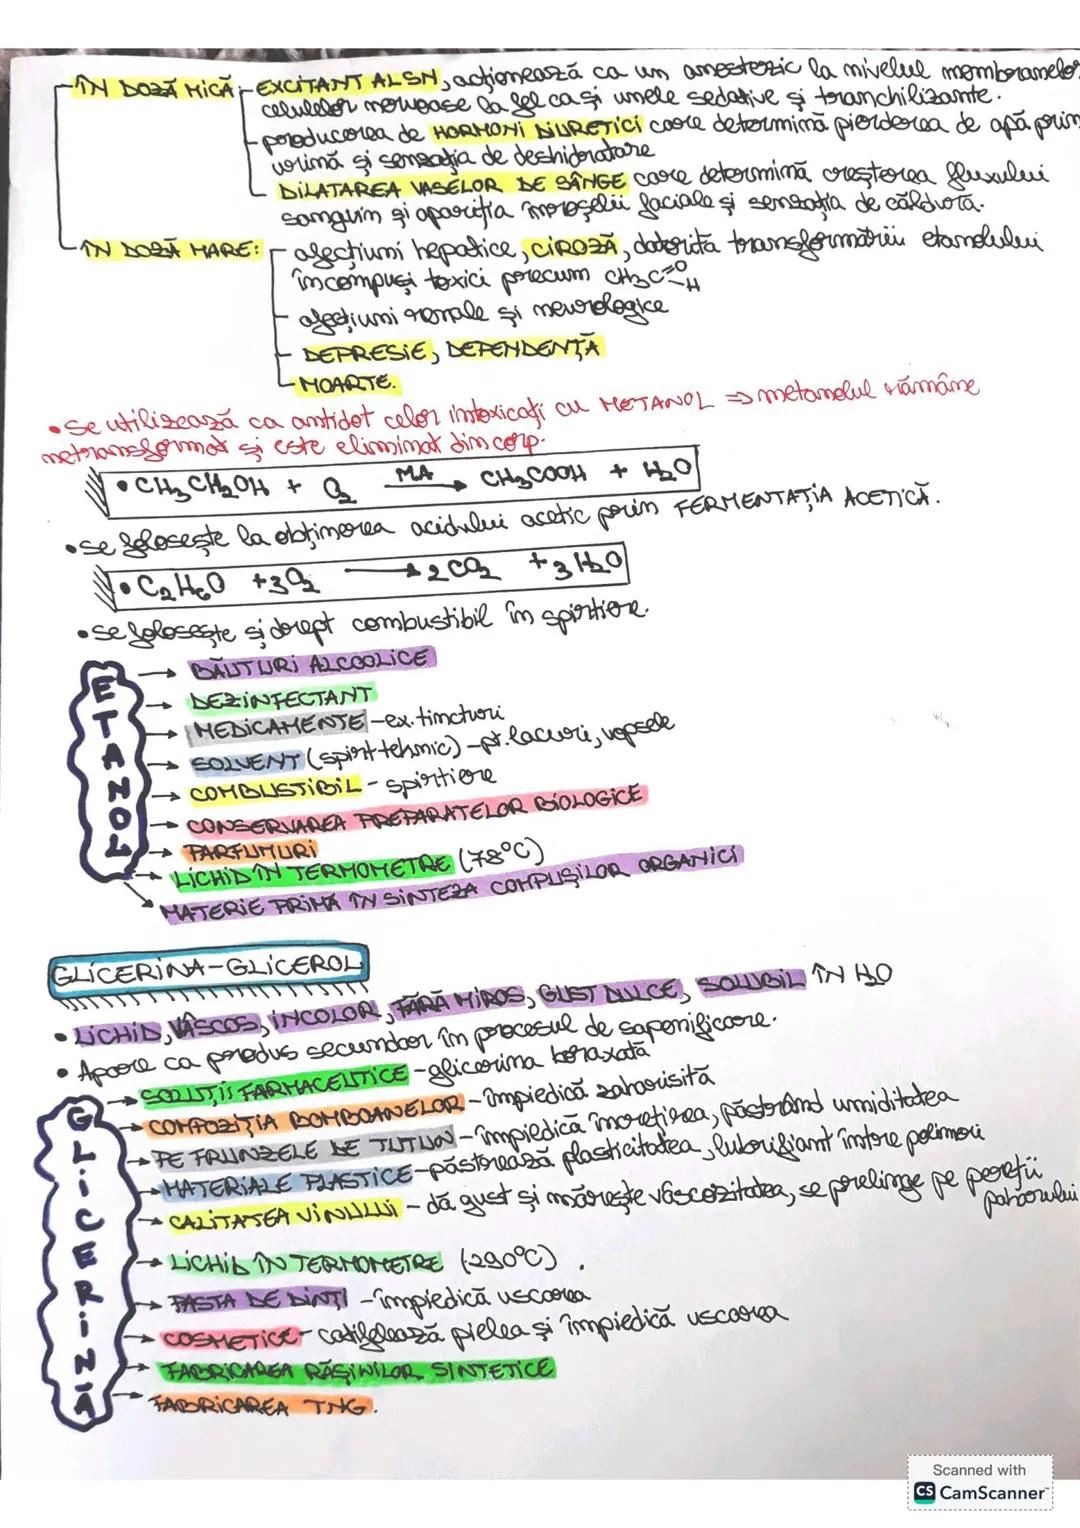 ÎN DOZĂ MICĂ - EXCITANT AL SN, acționează ca un anestezic la nivelul membranelor
celulelor nervoase la fel ca și unele sedative și tranchilizante.
- producerea de HORMONI DIURETICI care determină pierderea de apă prin
urină și senzația de deshidratare
DILATAREA VASELOR DE SÂNGE care determină creșterea fluxului
sanguin și apariția înroșelii faciale și senzația de căldură.
ÎN DOZĂ MARE: - afecțiuni hepatice, CIROZĂ, datorită transformării etanolului
în compuși toxici precum CH3C=O-H
- afecțiuni renale și neurologice
- DEPRESIE, DEPENDENȚĂ
- MOARTE.
• Se utilizează ca antidot celor intoxicați cu METANOL => metanolul rămâne
netransformat și este eliminat din corp.
• CH3CH2OH + O2 MA → CH3COOH + H2O
• se folosește la obținerea acidului acetic prin FERMENTAȚIA ACETICĂ.
• C2H6O + 3O2 → 2CO2 + 3H2O
• se folosește și drept combustibil în spirtiere.
ETANOL
→ BĂUTURI ALCOOLICE
→ DEZINFECTANT
→ MEDICAMENTE - ex. tincturi
→ SOLVENT (spirt tehnic) - pt. lacuri, vopsele
→ COMBUSTIBIL - spirtiere
→ CONSERVAREA PREPARATELOR BIOLOGICE
→ PARFUMURI
→ LICHID ÎN TERMOMETRE (78°C)
→ MATERIE PRIMĂ ÎN SINTEZA COMPUȘILOR ORGANICI
GLICERINA-GLICEROL
• LICHID, VÂSCOS, INCOLOR, FĂRĂ MIROS, GUST DULCE, SOLUBIL ÎN H2O
• Apare ca produs secundar în procesul de saponificare.
GLICERINĂ
→ SOLUȚII FARMACEUTICE - glicerina boraxată
→ COMPOZIȚIA BOMBOANELOR - împiedică zaharisită
→ PE FRUNZELE DE TUTUN - împiedică încrețirea, păstrând umiditatea
→ MATERIALE PLASTICE - păstrează plasticitatea, lubrifiant între polimeri
→ CALITATEA VINULUI - dă gust și mărește vâscozitatea, se prelinge pe pereții
paharului
→ LICHID ÎN TERMOMETRE (290°C).
→ PASTA DE DINȚI - împiedică uscarea
→ COSMETICE - catifelează pielea și împiedică uscarea
→ FABRICAREA RĂȘINILOR SINTETICE
→ FABRICAREA TNG.
Scanned with
CS CamScanner